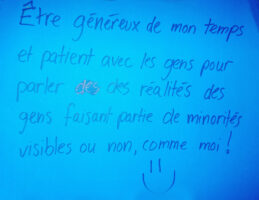 Être généreux de mon temps
et patient avec les gens pour
parler des des réalités des
gens faisant partie de minorités
visibles ou non, comme moi !